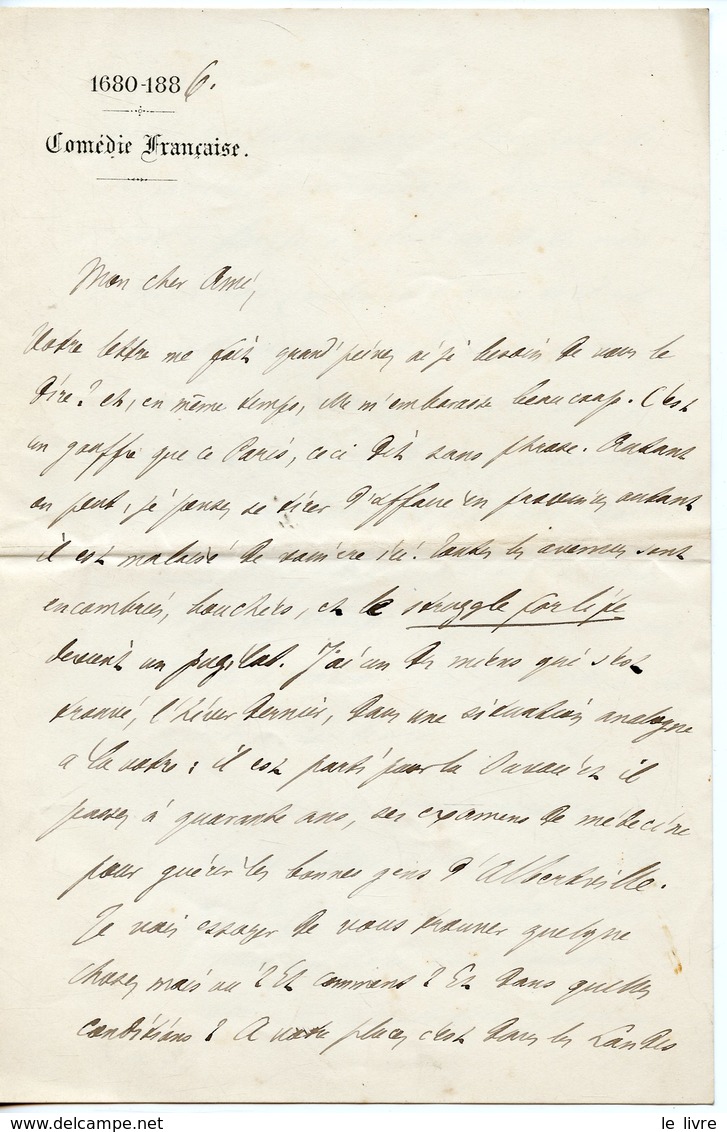 1680-1886.
Comédie Française.
Mon cher Ami,
Votre lettre me fait grand'peine, ai-je besoin de vous le
dire? et, en même temps, elle m'embarasse beaucoup. C'est
un gouffre que ce Paris, ceci dit sans phrase. Autant
on peut, je pense, se tirer d'affaire en province, autant
il est malaisé de vaincre ici. Toutes les avenues sont
encombrées, bouchées, et le struggle for life
devient un pugilat. J'ai un des miens qui s'est
trouvé, l'hiver dernier, dans une situation analogue
à la votre : il est parti pour la Savoie et il
passe, à quarante ans, ses examens de médecine
pour guérir les bonnes gens d'Albertville.
Je vais essayer de vous trouver quelque
chose, mais où? Et comment? Et dans quelles
conditions? A votre place, c'est dans les Landes
le livre